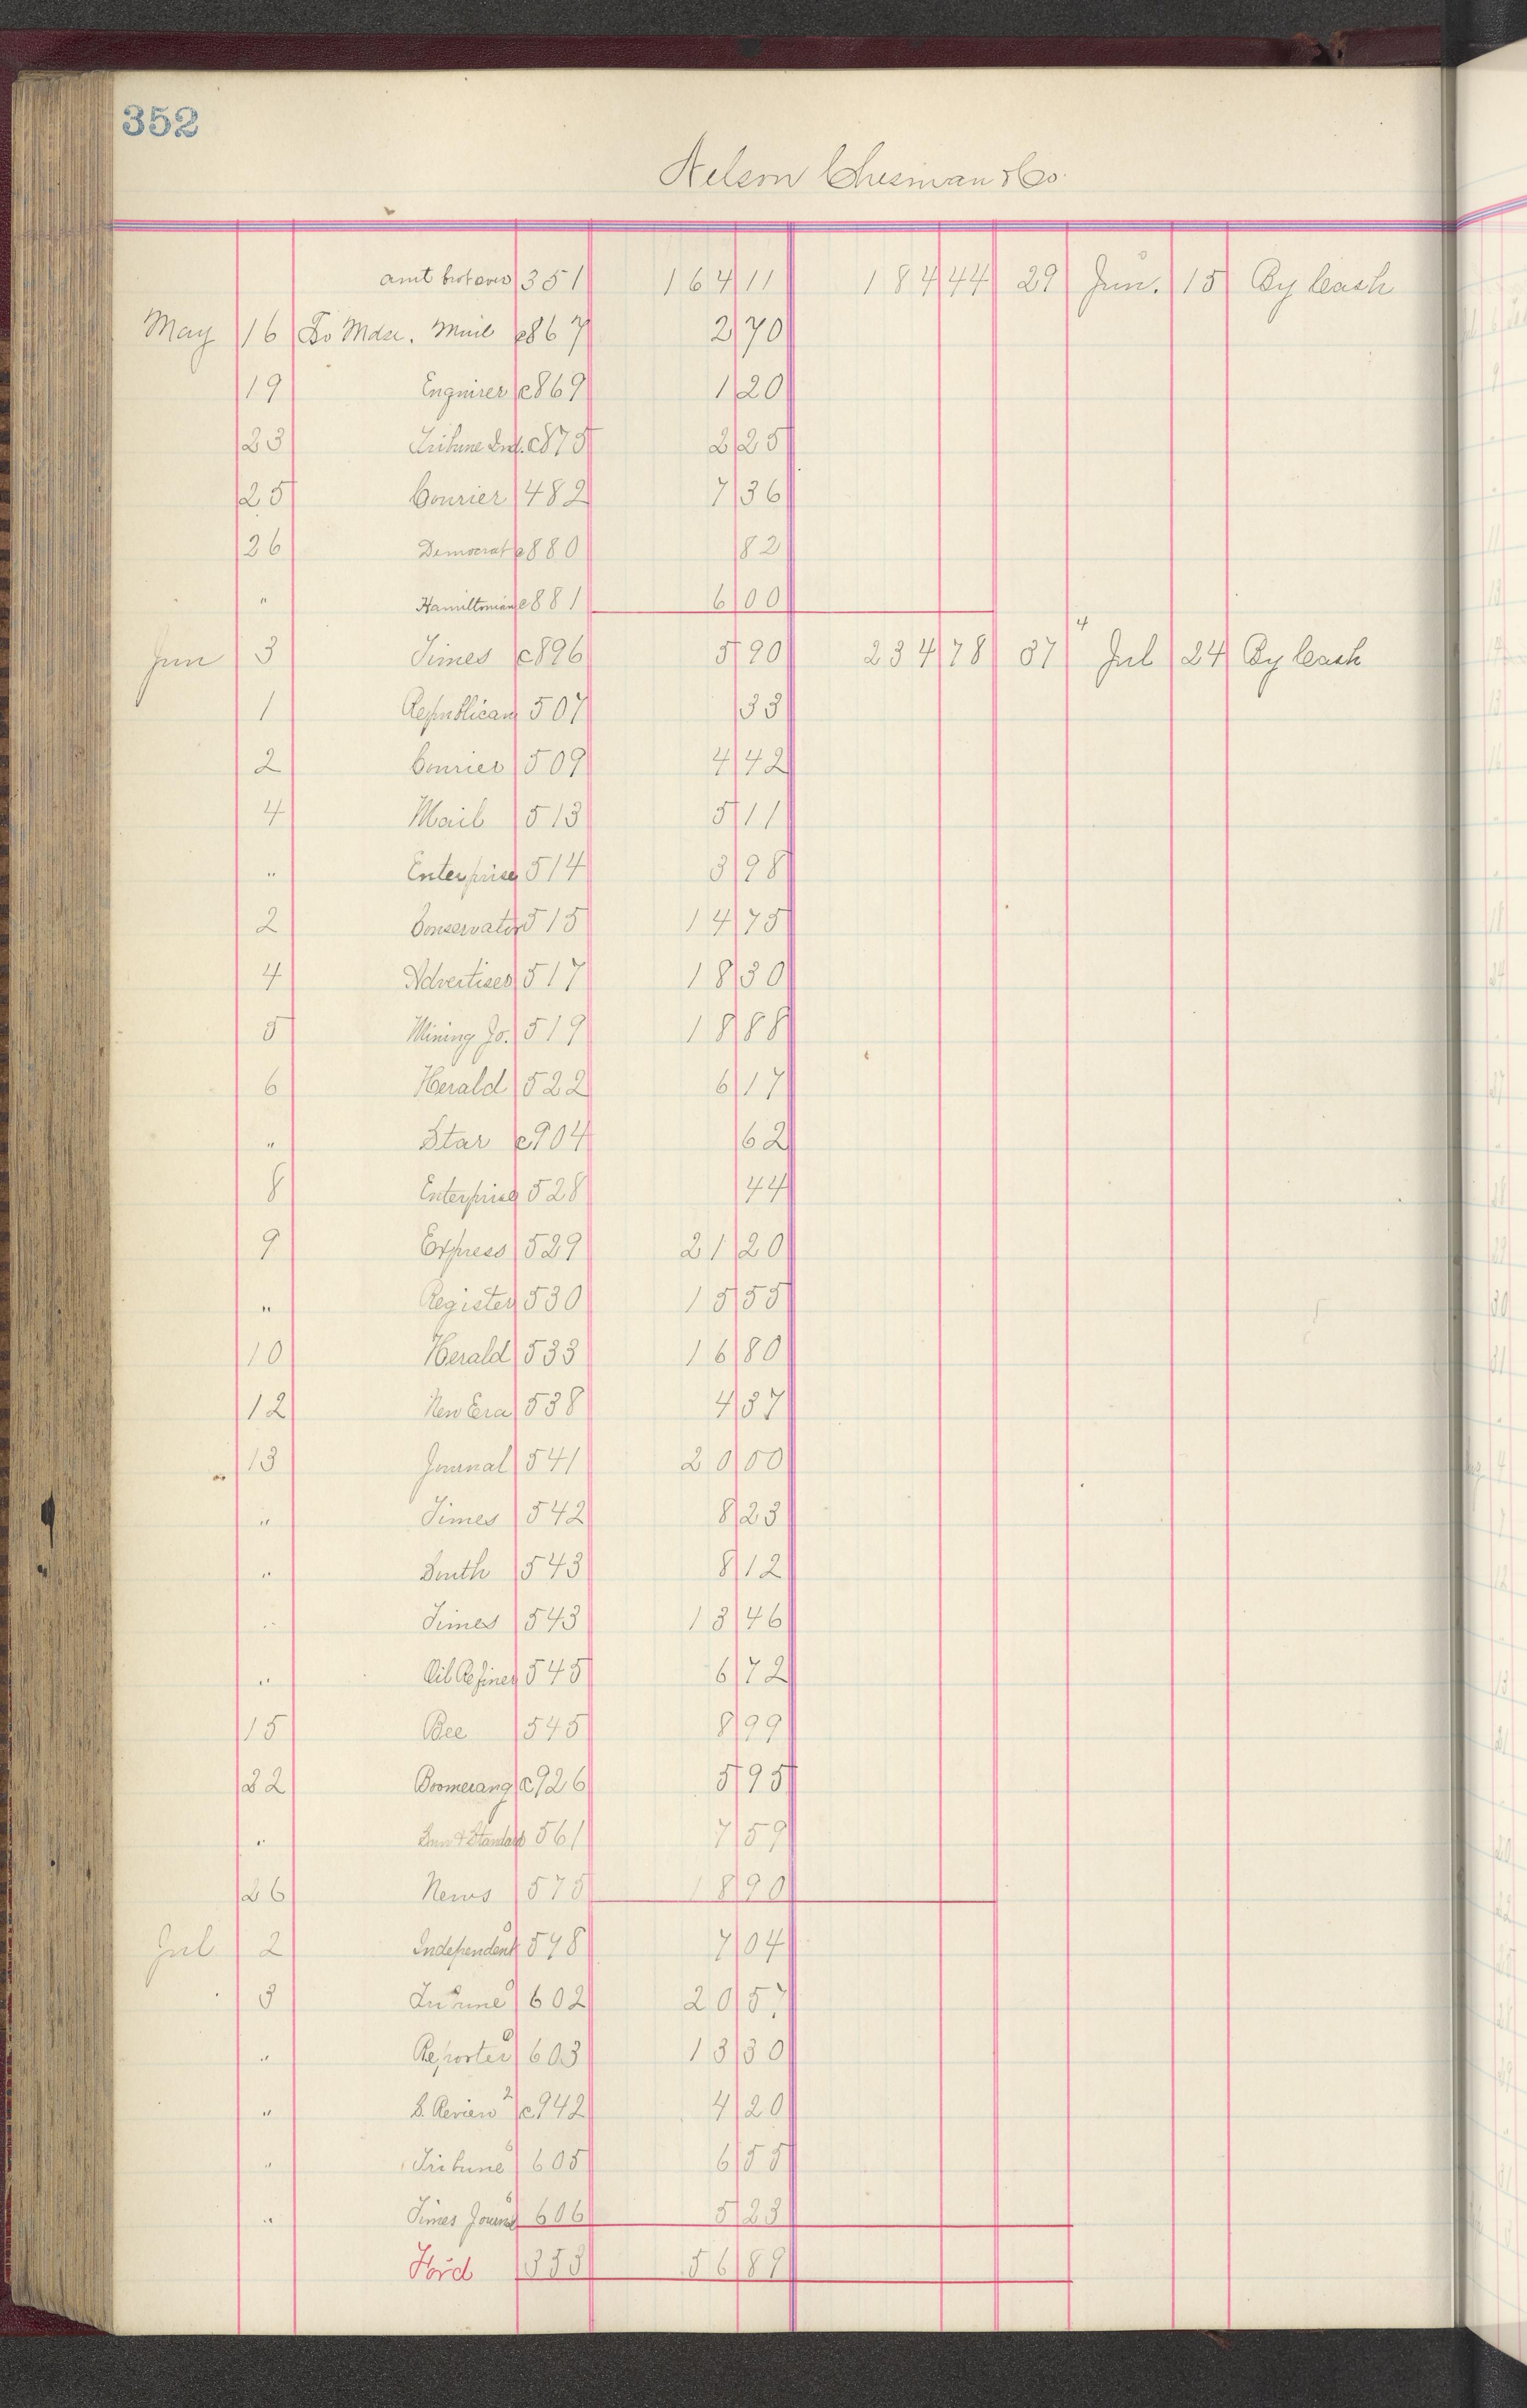 352
Nelson Chesman & Co.
amt brot over 351 164 11 184 44 29 Jun. 15 By Cash
May 16 To Mdse. Mail c867 2 70
19 Enquirer c869 1 20
23 Tribune c875 2 25
25 Courier 482 7 36
26 Democrat c880 82
" Hamiltonian c881 6 00
Jun 3 Times c896 5 90 234 78 37 4 Jul 24 By Cash
1 Republican 507 33
2 Courier 509 4 42
4 Mail 513 5 11
" Enterprise 514 3 98
2 Conservator 515 14 75
4 Advertiser 517 18 30
5 Mining Jo. 519 18 88
6 Herald 522 6 17
" Star c904 62
8 Enterprise 528 44
9 Express 529 21 20
" Register 530 15 55
10 Herald 533 16 80
12 New Era 538 4 37
13 Journal 541 20 00
" Times 542 8 23
" South 543 8 12
" Times 543 13 46
" Oil Refiner 545 6 72
15 Bee 545 8 99
22 Boomerang c926 5 95
" Sun & Standard 561 7 59
26 News 575 18 90
Jul 2 Independent 598 7 04
3 602 20
" Reporter 603 13 30
" S. Review 2 c942 4 20
" Tribune 605 6 55
" Times Journal 606 5 23
Ford 353 56 89